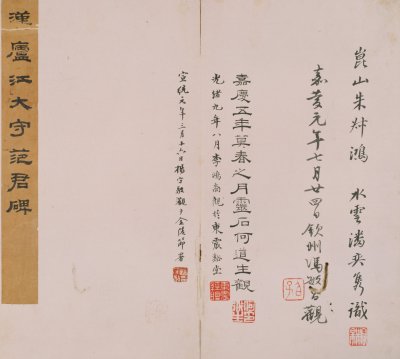 崑山朱鴻 水雲潘奕雋識
嘉慶元年七月廿四日欽州馮敏昌觀
嘉慶五年莫春之月靈石何道生觀
光緒九年八月李鴻裔觀於東堂
宣統元年月六日楊守敬觀于金陵節署
漢廬江大守范君碑